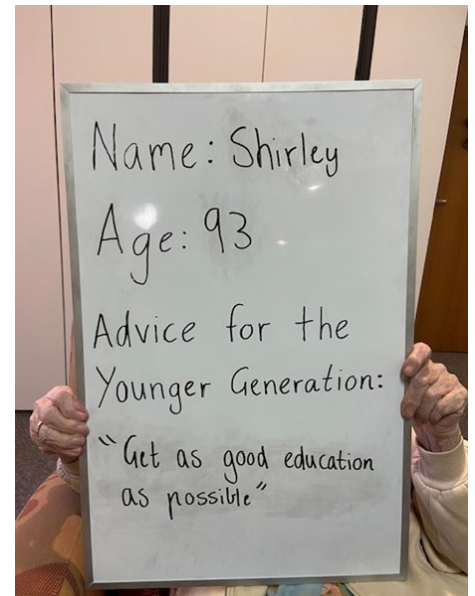 Name: Shirley
Age: 93
Advice for the
Younger Generation:
"Get as good education
as possible"